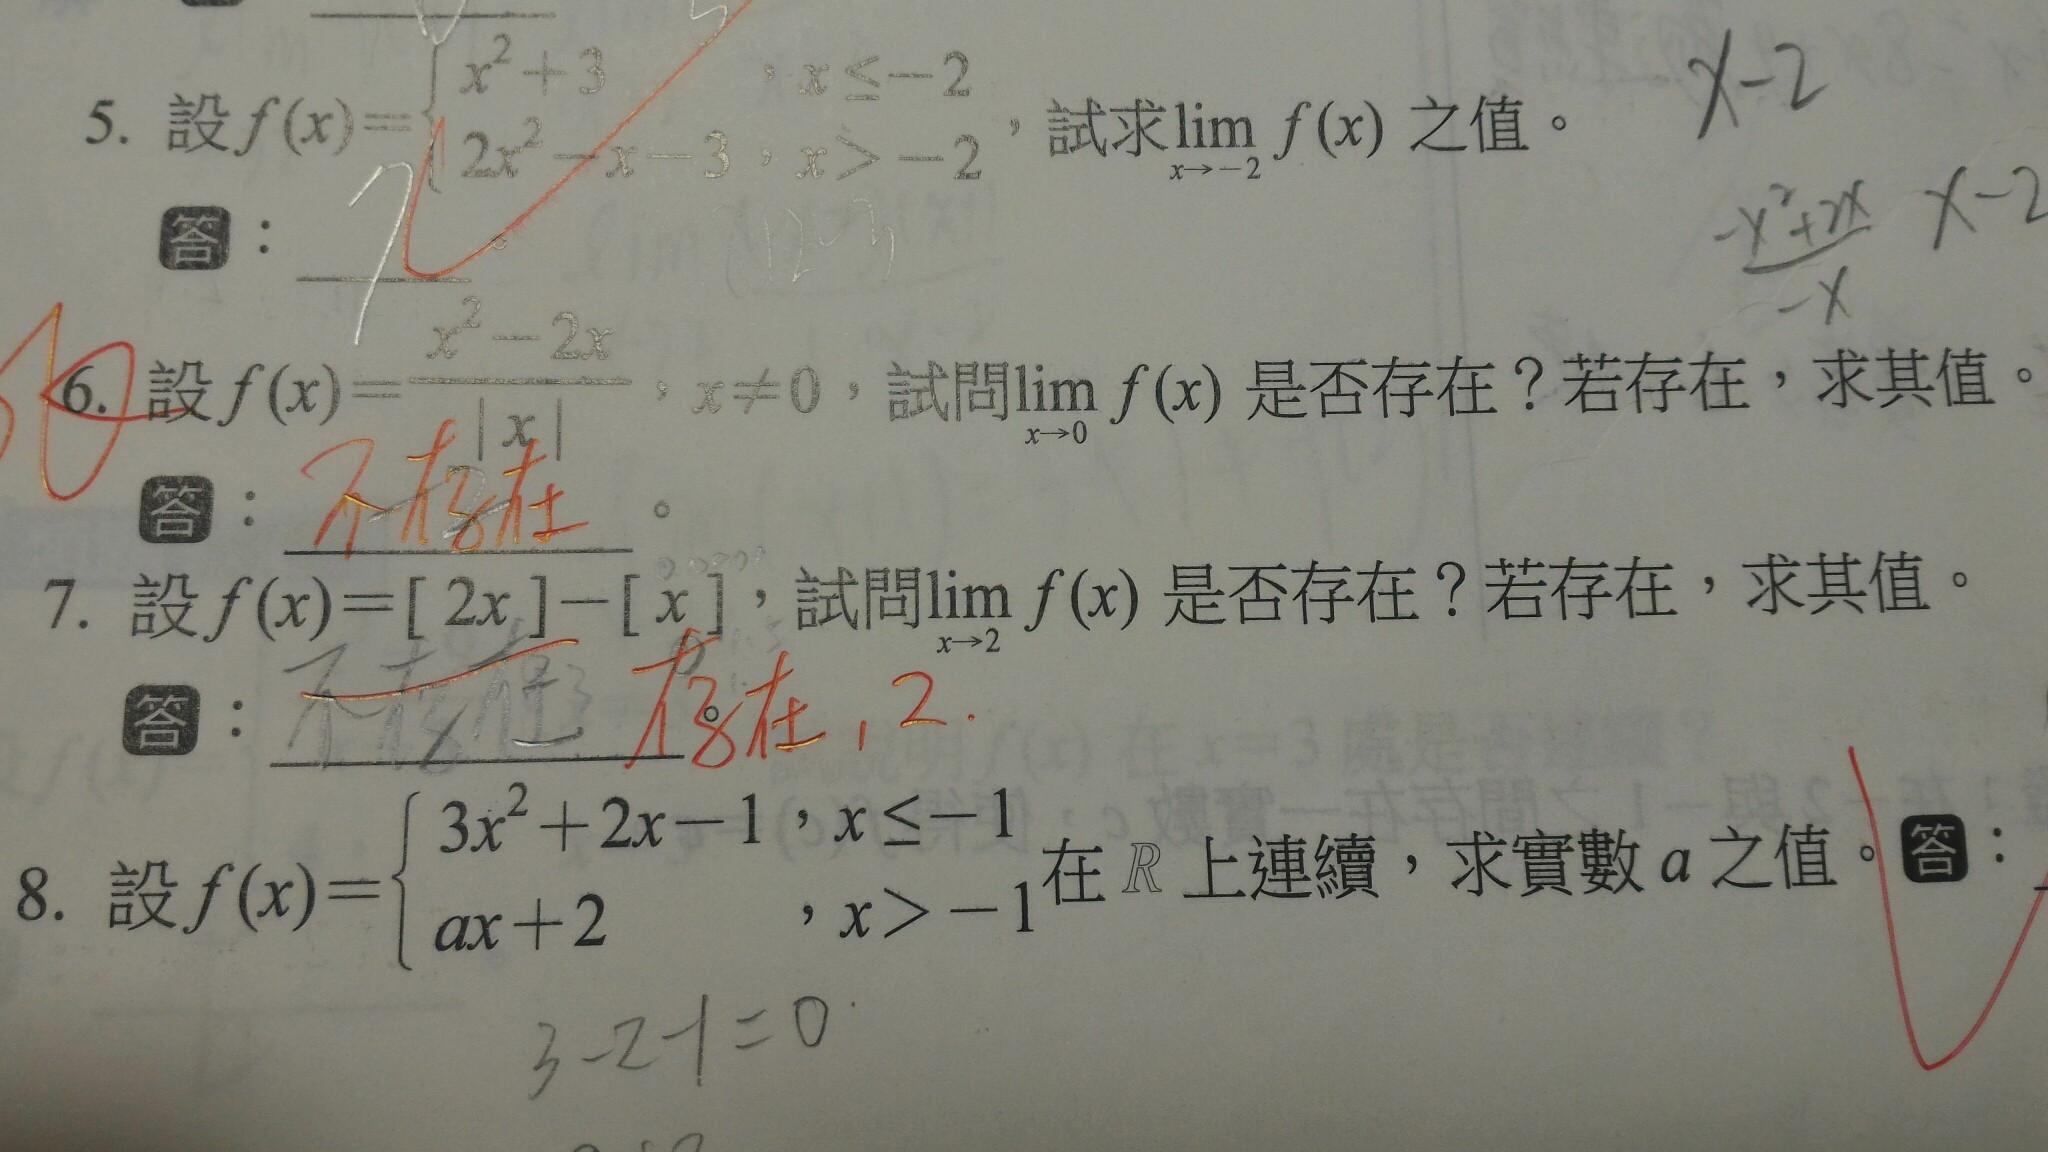 5. 設 f(x)={ x²+3 ，x≤−2
2x²−x−3，x>−2 ，試求 lim x→−2 f(x) 之值。
x−2
答：7。
−x²+2x x−2
−x
6. 設 f(x)=x²−2x/|x|，x≠0，試問 lim x→0 f(x) 是否存在？若存在，求其值。
答：不存在。
7. 設 f(x)=[2x]−[x]，試問 lim x→2 f(x) 是否存在？若存在，求其值。
答：不存在。存在, 2.
8. 設 f(x)={ 3x²+2x−1，x≤−1
ax+2 ，x>−1 在 R 上連續，求實數 a 之值。答：
3−2−1=0